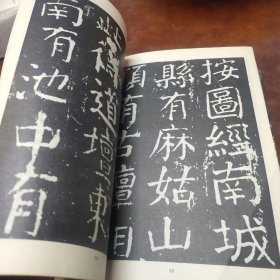 按圖經南城
縣有麻姑山
頂有古壇相
此得道壇東
南有池中有